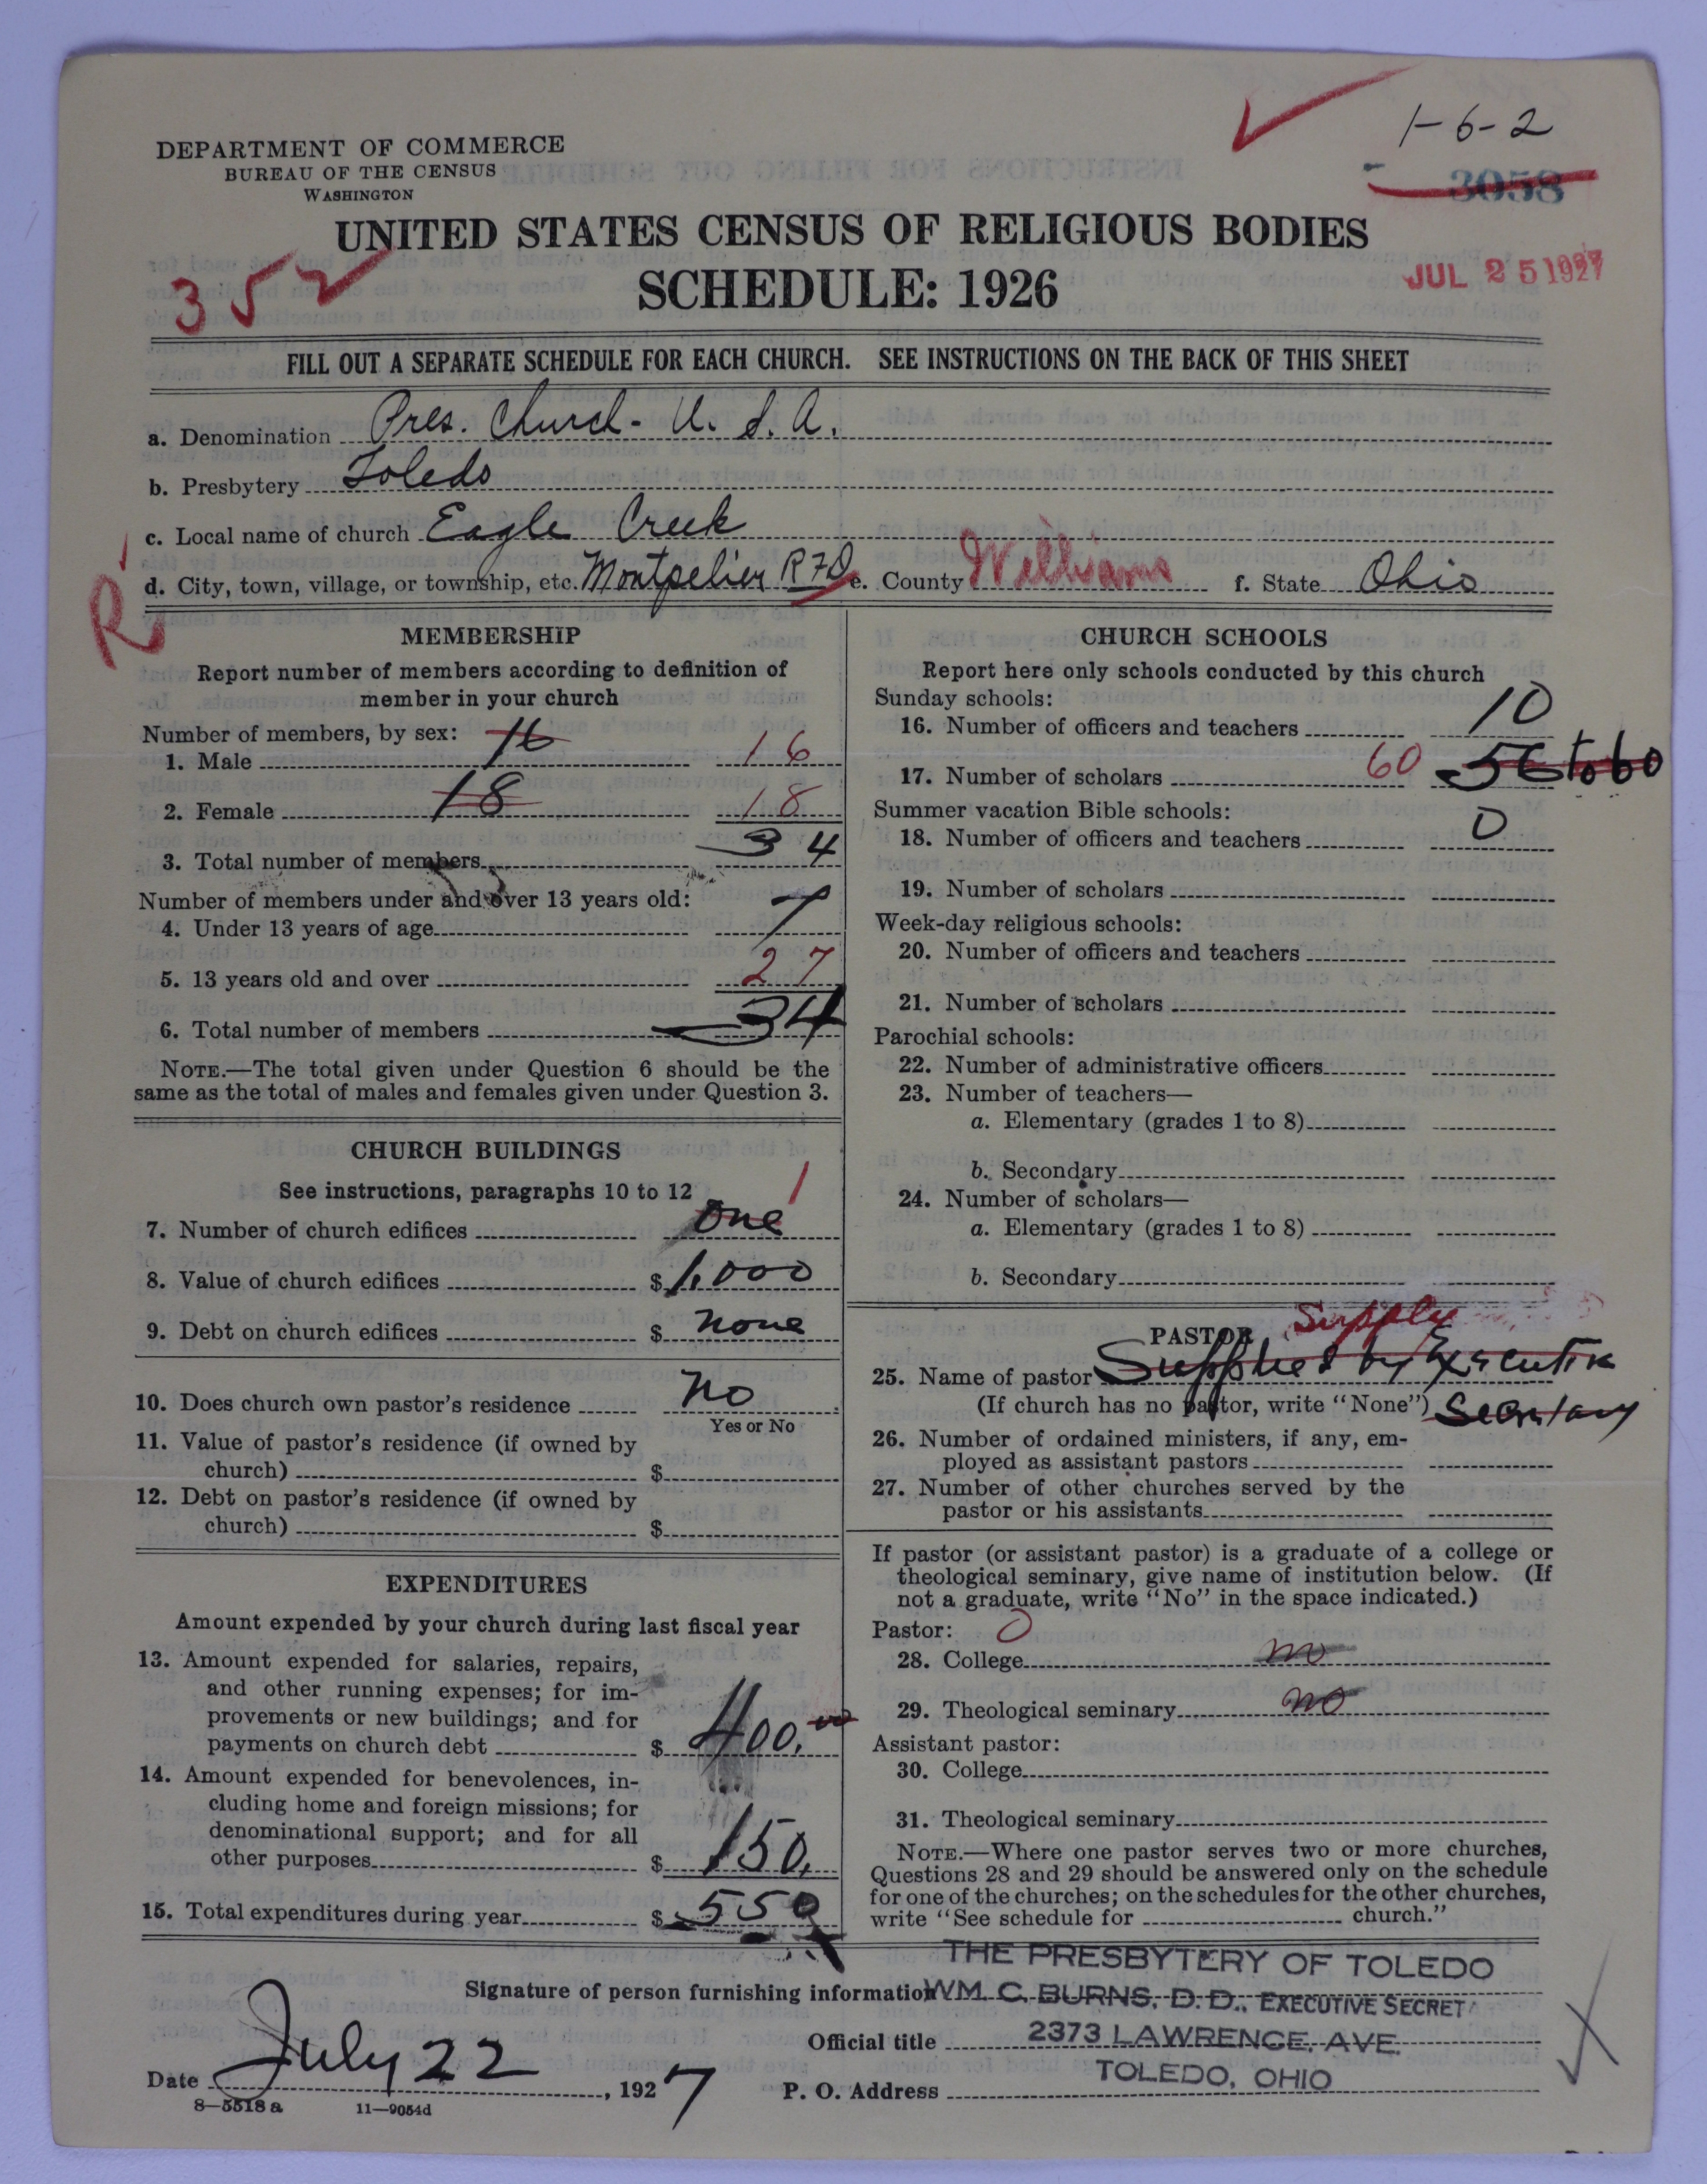 1-6-2
DEPARTMENT OF COMMERCE
BUREAU OF THE CENSUS
WASHINGTON
3058
UNITED STATES CENSUS OF RELIGIOUS BODIES
SCHEDULE: 1926
352
JUL 25 1927
FILL OUT A SEPARATE SCHEDULE FOR EACH CHURCH. SEE INSTRUCTIONS ON THE BACK OF THIS SHEET
a. Denomination Pres. Church - U. S. A.
b. Presbytery Toledo
c. Local name of church Eagle Creek
d. City, town, village, or township, etc. Montpelier RFD e. County Williams f. State Ohio
R
MEMBERSHIP
Report number of members according to definition of
member in your church
Number of members, by sex:
1. Male 16 16
2. Female 18 18
3. Total number of members 34
Number of members under and over 13 years old:
4. Under 13 years of age 7
5. 13 years old and over 27
6. Total number of members 34
NOTE.—The total given under Question 6 should be the
same as the total of males and females given under Question 3.
CHURCH BUILDINGS
See instructions, paragraphs 10 to 12
7. Number of church edifices one 1
8. Value of church edifices $ 1,000
9. Debt on church edifices $ none
10. Does church own pastor's residence no
Yes or No
11. Value of pastor's residence (if owned by
church) $
12. Debt on pastor's residence (if owned by
church) $
EXPENDITURES
Amount expended by your church during last fiscal year
13. Amount expended for salaries, repairs,
and other running expenses; for im-
provements or new buildings; and for
payments on church debt $ 400.00
14. Amount expended for benevolences, in-
cluding home and foreign missions; for
denominational support; and for all
other purposes $ 150.
15. Total expenditures during year $ 550
CHURCH SCHOOLS
Report here only schools conducted by this church
Sunday schools:
16. Number of officers and teachers 10
17. Number of scholars 60 56 to 60
Summer vacation Bible schools:
18. Number of officers and teachers 0
19. Number of scholars
Week-day religious schools:
20. Number of officers and teachers
21. Number of scholars
Parochial schools:
22. Number of administrative officers
23. Number of teachers—
a. Elementary (grades 1 to 8)
b. Secondary
24. Number of scholars—
a. Elementary (grades 1 to 8)
b. Secondary
PASTOR Supply
25. Name of pastor Supplied by Executive
(If church has no pastor, write "None") Secretary
26. Number of ordained ministers, if any, em-
ployed as assistant pastors
27. Number of other churches served by the
pastor or his assistants
If pastor (or assistant pastor) is a graduate of a college or
theological seminary, give name of institution below. (If
not a graduate, write "No" in the space indicated.)
Pastor: 0
28. College no
29. Theological seminary no
Assistant pastor:
30. College
31. Theological seminary
NOTE.—Where one pastor serves two or more churches,
Questions 28 and 29 should be answered only on the schedule
for one of the churches; on the schedules for the other churches,
write "See schedule for church."
THE PRESBYTERY OF TOLEDO
Signature of person furnishing information WM. C. BURNS, D. D., EXECUTIVE SECRET
Official title 2373 LAWRENCE AVE.
Date July 22, 1927 P. O. Address TOLEDO, OHIO
8—5518 a 11—9054d